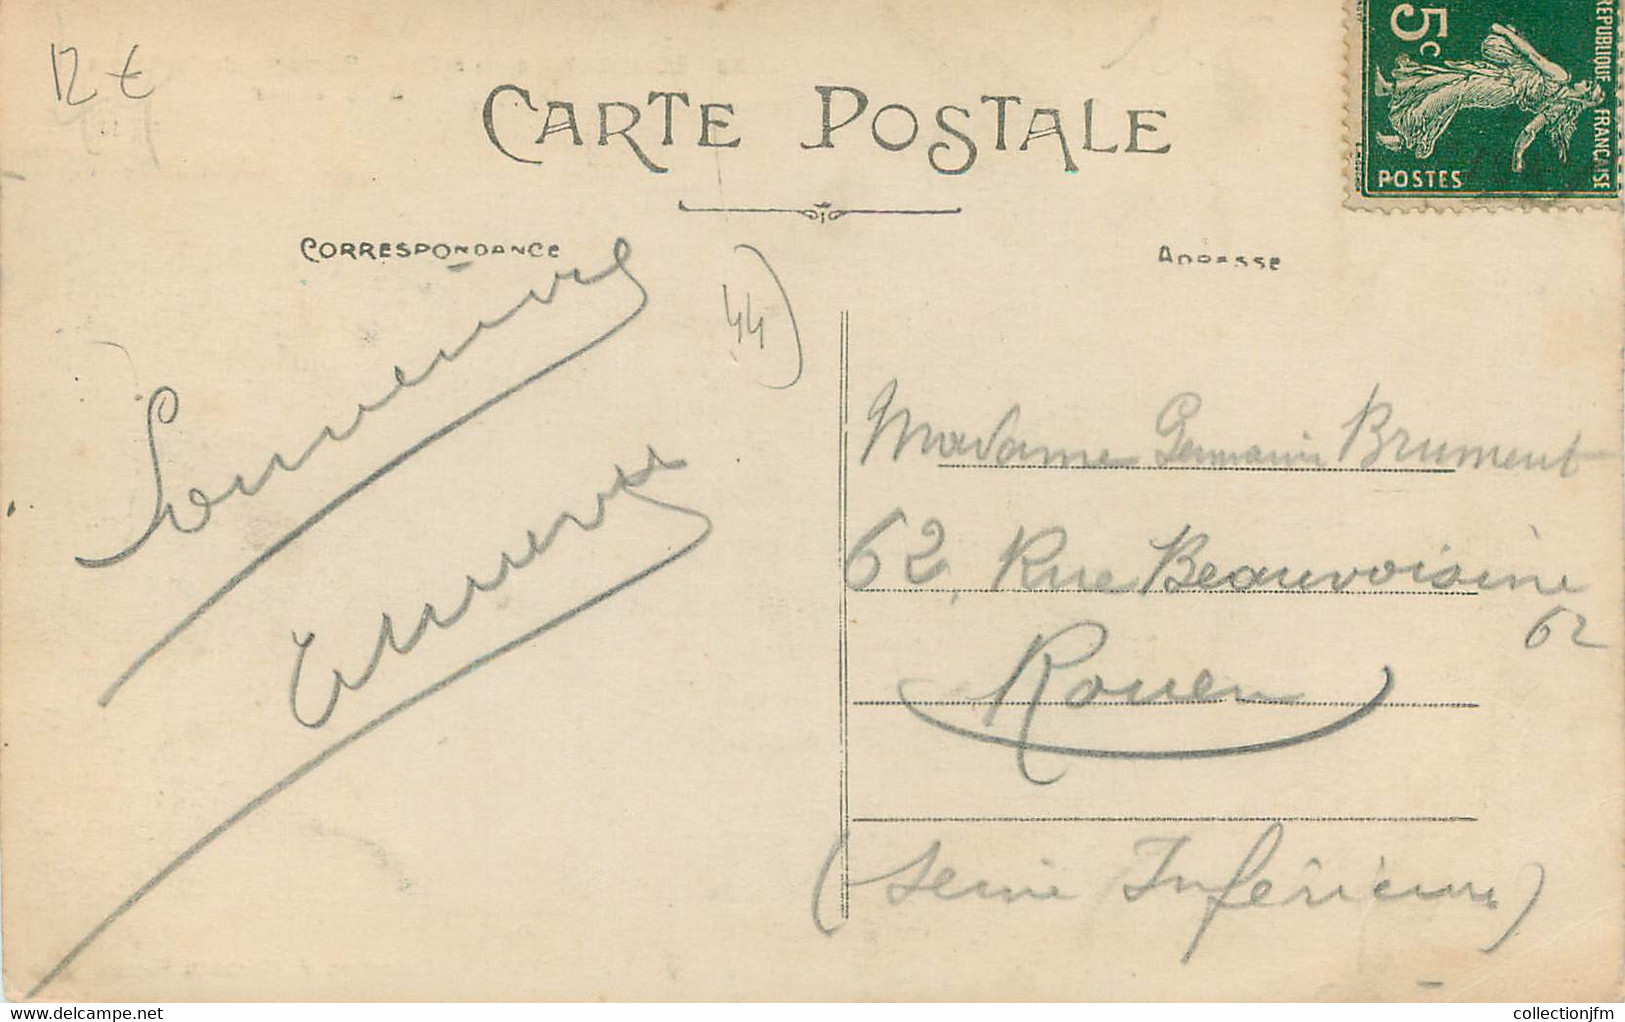 12 €
CARTE POSTALE
5c
REPUBLIQUE FRANCAISE
POSTES
CORRESPONDANCE
ADRESSE
44)
Madame Germain Brument
62, Rue Beauvoisine
62
Rouen
(Seine Inférieure)
www.delcampe.net
collectionjfm